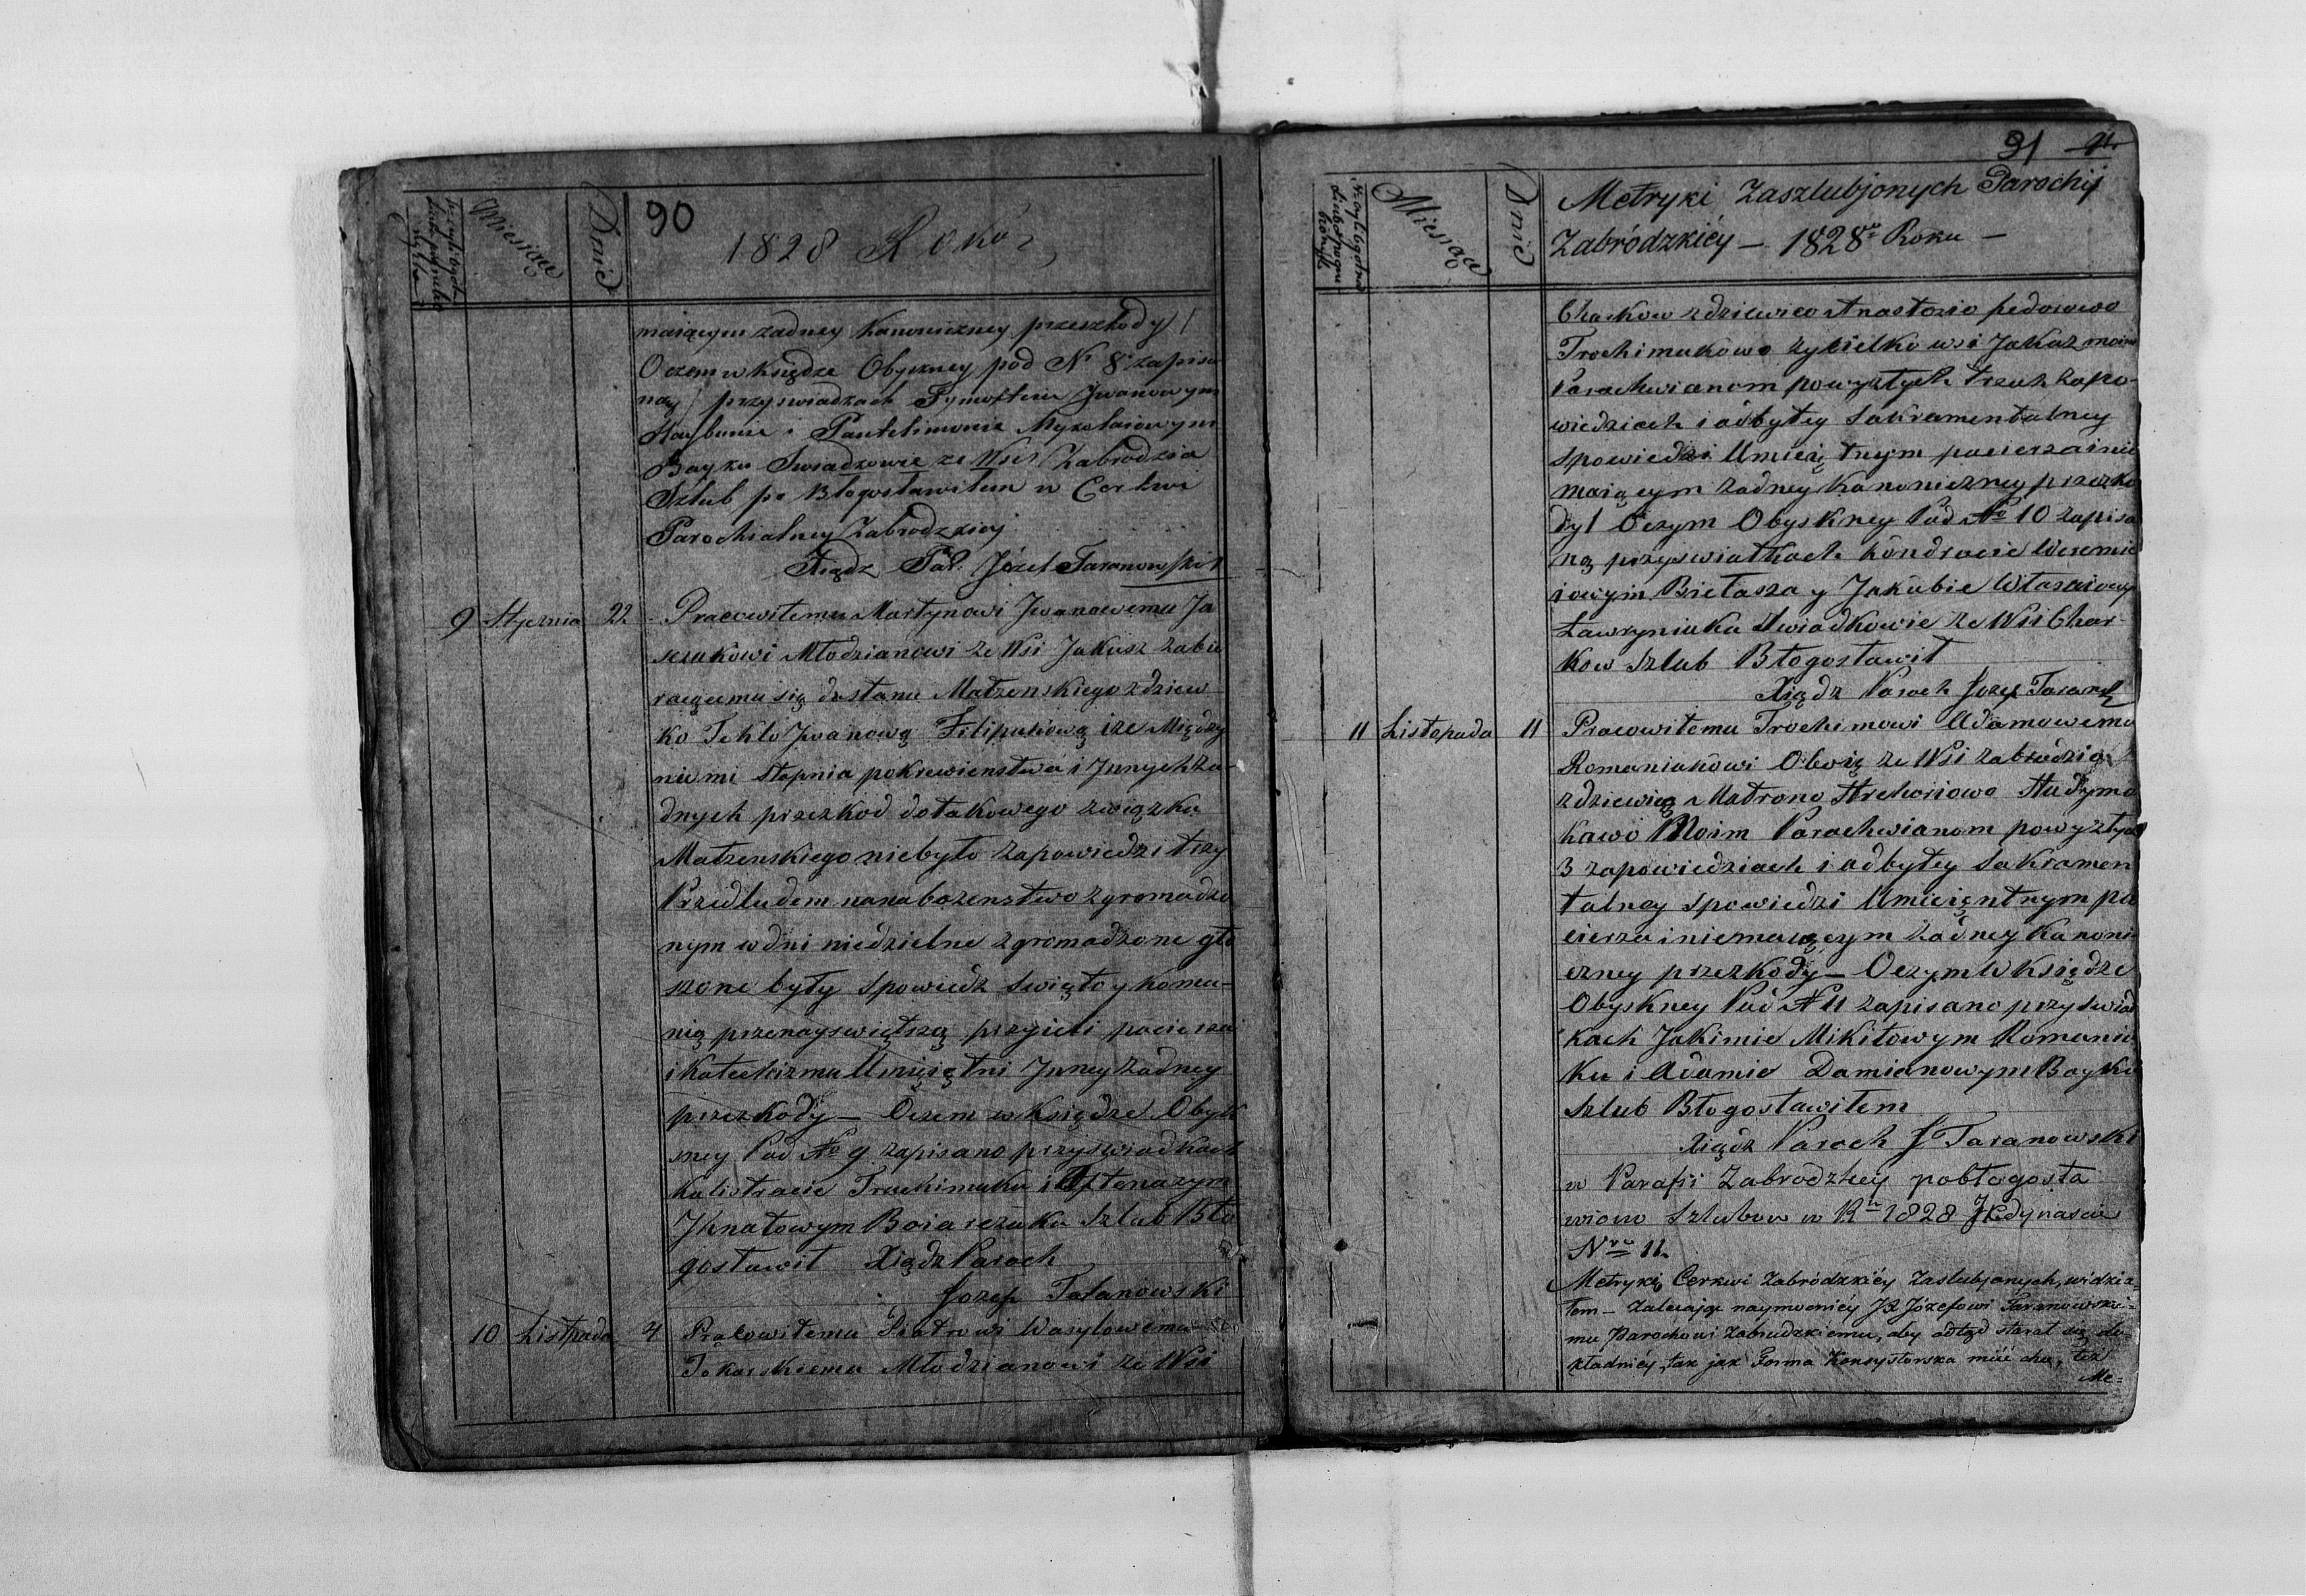 90
1828 Roku
Miesiąc
Dnie
maiącym zadney Kanoniczney przeszkody /
Oczem w Księdze Obyskney pod Nº 8 zapisa
no / przy swiadkach Tymofteiu Jwanowym
i Pantelimonie Mykołaiowym
Bayku Swiadkowie ze Wsi Zabrodzia
Szlub po Błogosławiłem w Cerkwi
Parochialney Zabrodzkiey
Xiądz Par. Józef Taranowski
9 Stycznia 22 Pracowitemu Martynowi Jwanowemu Ja
sczukowi Młodzianowi ze Wsi Jakusz zabie
raiącemu się do stanu Małzenskiego z dziew
ko Teklo Jwanową Filipukową ize Między
niemi stopnia pokrewienstwa i Jnnych ża-
dnych przezkod do takowego związku
Małzenskiego niebyło zapowiedzi trzy
Przed ludem na nabozenstwo zgromadzo
nym w dni niedzielne zgromadzone gło
szone były spowiedz swięto y komu-
nią przenayswiętszą przyieli pacierza
i Katechizmu Umięiętni Jnney zadney
przezkody — Oczem w Księdze Obysk
ney Pod No 9 zapisano przy swiadkach
Kalistracie Trochimuku i Aftonazym
Jhnatowym Boiarczuku Szlub Bło
gosławił Xiądz Paroch
Jozef Taranowski
10 Listpada 4 Pracowitemu Piotrowi Wasylowemu
Tokarskiemu Młodzianowi ze Wsi
91
Miesiąc
Dnie
Metryki Zaszlubjonych Parochij
Zabródzkiéy — 1828º Roku —
Charkow z dziewico Anastazio fedorowo
Trochimukowo zybielko wsi Jakusz moim
Parachwianom powyżtych trzech zapo-
wiedziach i odbytey Sakramentalney
Spowiedzi Umieiętnym pacierza i nie
maiącym zadney Kanoniczney przezko
dy / Oczym Obyskney Pod No 10 zapisa
no przy swiatkach Kondracie
iowym Bietasza y Jakubie Własaiowy
Ławryniuku Swiadkowie ze Wsi Char-
kow Szlub Błogosławił
Xiądz Paroch Jozef Taran
11 Listopada 11 Pracowitemu Trochimowi Adamowemu
Romaniukowi ze Wsi Zabrodzia
z dziewicą Matrono Hrehoriowo
kawo Moim Parachwianom powyżtych
3 zapowiedziach i odbytey Sakramen
talney Spowiedzi Umieiętnym pa
cierza i niemaiącym żadney Kanoni-
czney przezkody — Oczym W Księdze
Obyskney Pod N 11 zapisano przy Swiad
kach Jakimie Mikitowym Romaniu
ku i Adamie Damianowym Bayku
Szlub Błogosławiłem
Xiądz Paroch J Taranowski
w Parafii Zabrodzkey pobłogosła
wiono Szlubow w Ru 1828 Jedynascie
Nro 11.
Metrykę Cerkwi Zabródzkiéy Zaslubjonych, widzia-
łem — Zalecaiąc naymocniéy JX Józefowi Taranowskie-
mu Parochowi Zabrodzkiemu, aby odtąd starał się do-
kładniéy, tak jak Forma Konsystorska miéć chce, też
Me=